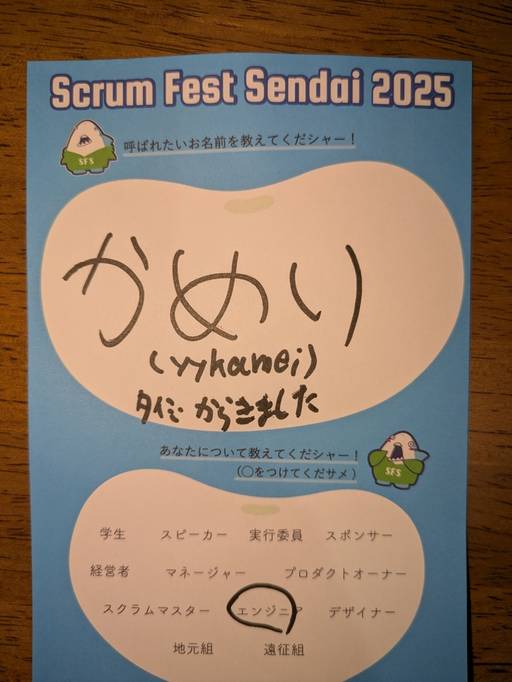 Scrum Fest Sendai 2025
呼ばれたいお名前を教えてくだシャー！
SFS
かめい
(yykamei)
からきました
あなたについて教えてくだシャー！
(○をつけてくだサメ)
SFS
学生 スピーカー 実行委員 スポンサー
経営者 マネージャー プロダクトオーナー
スクラムマスター エンジニア デザイナー
地元組 遠征組